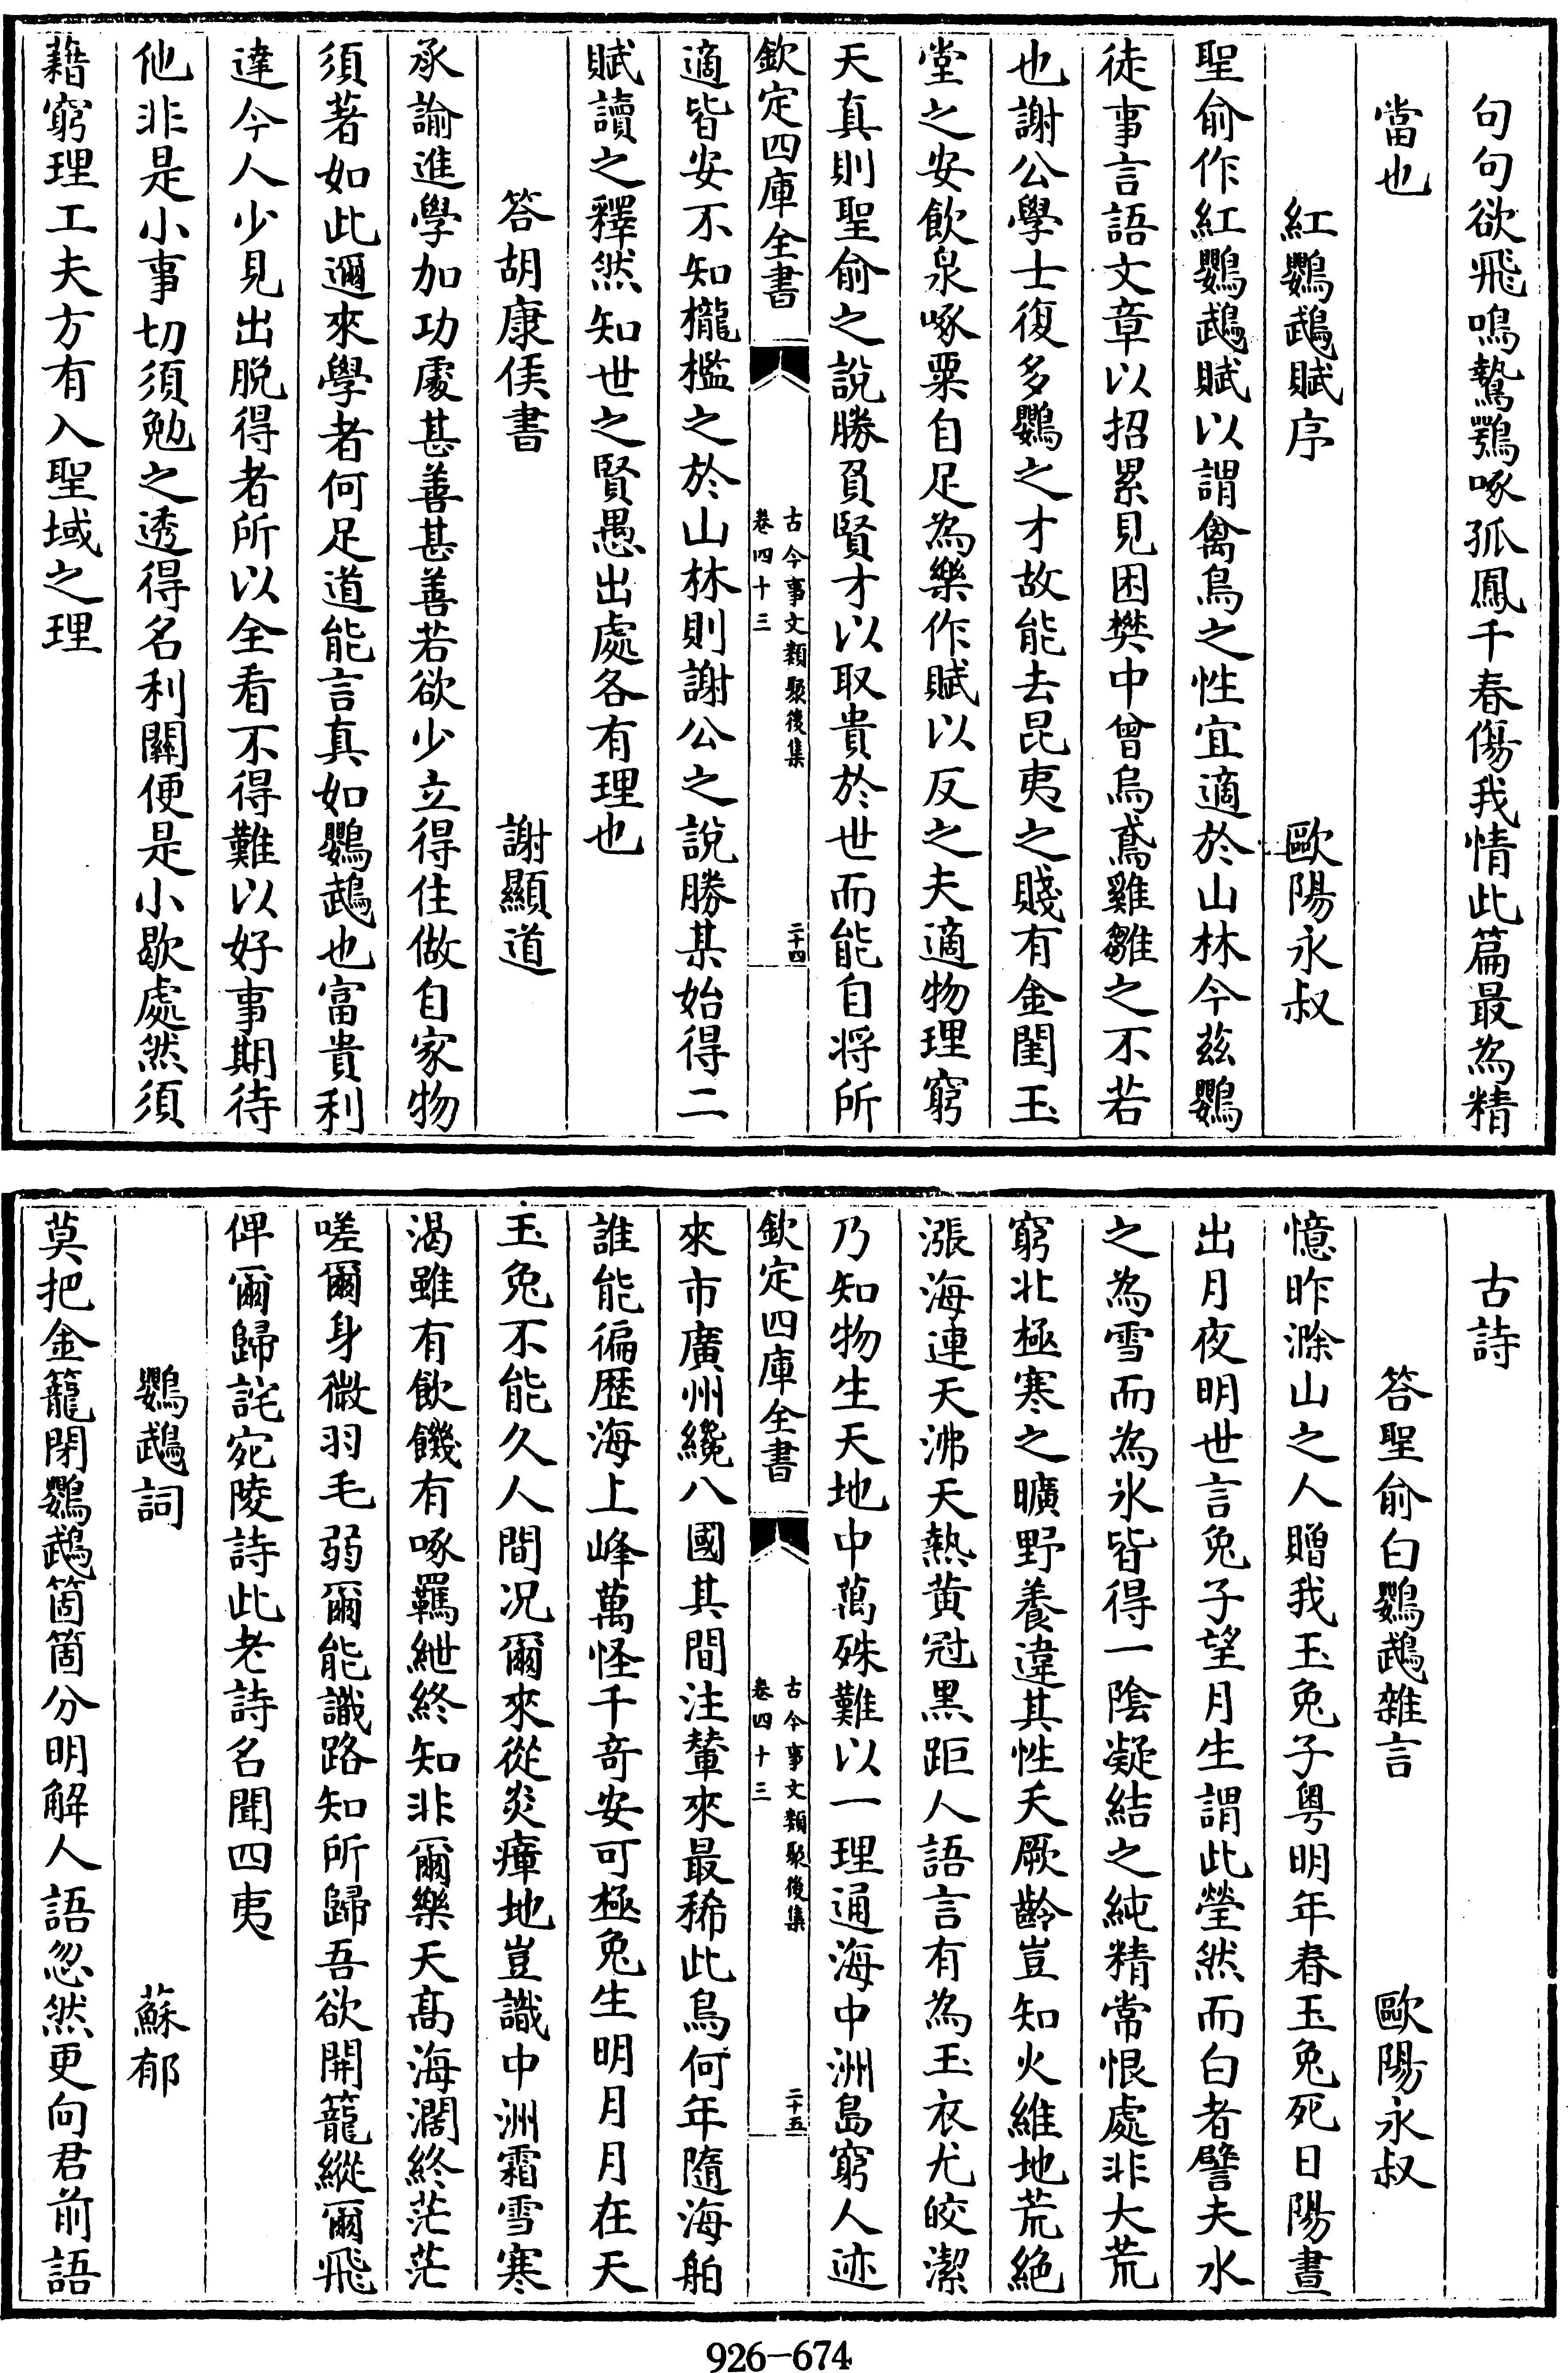 句句欲飛鳴鷙鶚啄孤鳳千春傷我情此篇最為精
當也
紅鸚鵡賦序
歐陽永叔
聖俞作紅鸚鵡賦以謂禽鳥之性宜適於山林今兹鸚
徒事言語文章以招累見困樊中曾烏鳶雞雛之不若
也謝公學士復多鸚之才故能去昆夷之賤有金閨玉
堂之安飲泉啄粟自足為樂作賦以反之夫適物理窮
天真則聖俞之說勝負賢才以取貴於世而能自將所
欽定四庫全書
古今事文類聚後集
卷四十三
二十四
適皆安不知櫳檻之於山林則謝公之說勝其始得二
賦讀之釋然知世之賢愚出處各有理也
答胡康侯書
謝顯道
承諭進學加功處甚善甚善若欲少立得住做自家物
須著如此邇來學者何足道能言真如鸚鵡也富貴利
達今人少見出脱得者所以全看不得難以好事期待
他非是小事切須勉之透得名利關便是小歇處然須
藉窮理工夫方有入聖域之理
古詩
答聖俞白鸚鵡雜言
歐陽永叔
憶昨滁山之人贈我玉兔子粵明年春玉兔死日陽晝
出月夜明世言兔子望月生謂此瑩然而白者譬夫水
之為雪而為氷皆得一陰凝結之純精常恨處非大荒
窮北極寒之曠野養違其性夭厥齡豈知火維地荒絶
漲海連天沸天熱黄冠黑距人語言有為玉衣尤皎潔
乃知物生天地中萬殊難以一理通海中洲島窮人迹
欽定四庫全書
古今事文類聚後集
卷四十三
二十五
來市廣州纔八國其間注輦來最稀此鳥何年隨海舶
誰能徧歴海上峰萬怪千奇安可極兔生明月月在天
玉兔不能久人間况爾來從炎瘴地豈識中洲霜雪寒
渴雖有飲饑有啄羈紲終知非爾樂天髙海濶終茫茫
嗟爾身微羽毛弱爾能識路知所歸吾欲開籠縱爾飛
俾爾歸詫宛陵詩此老詩名聞四夷
鸚鵡詞
蘇郁
莫把金籠閉鸚鵡箇箇分明解人語忽然更向君前語
926-674